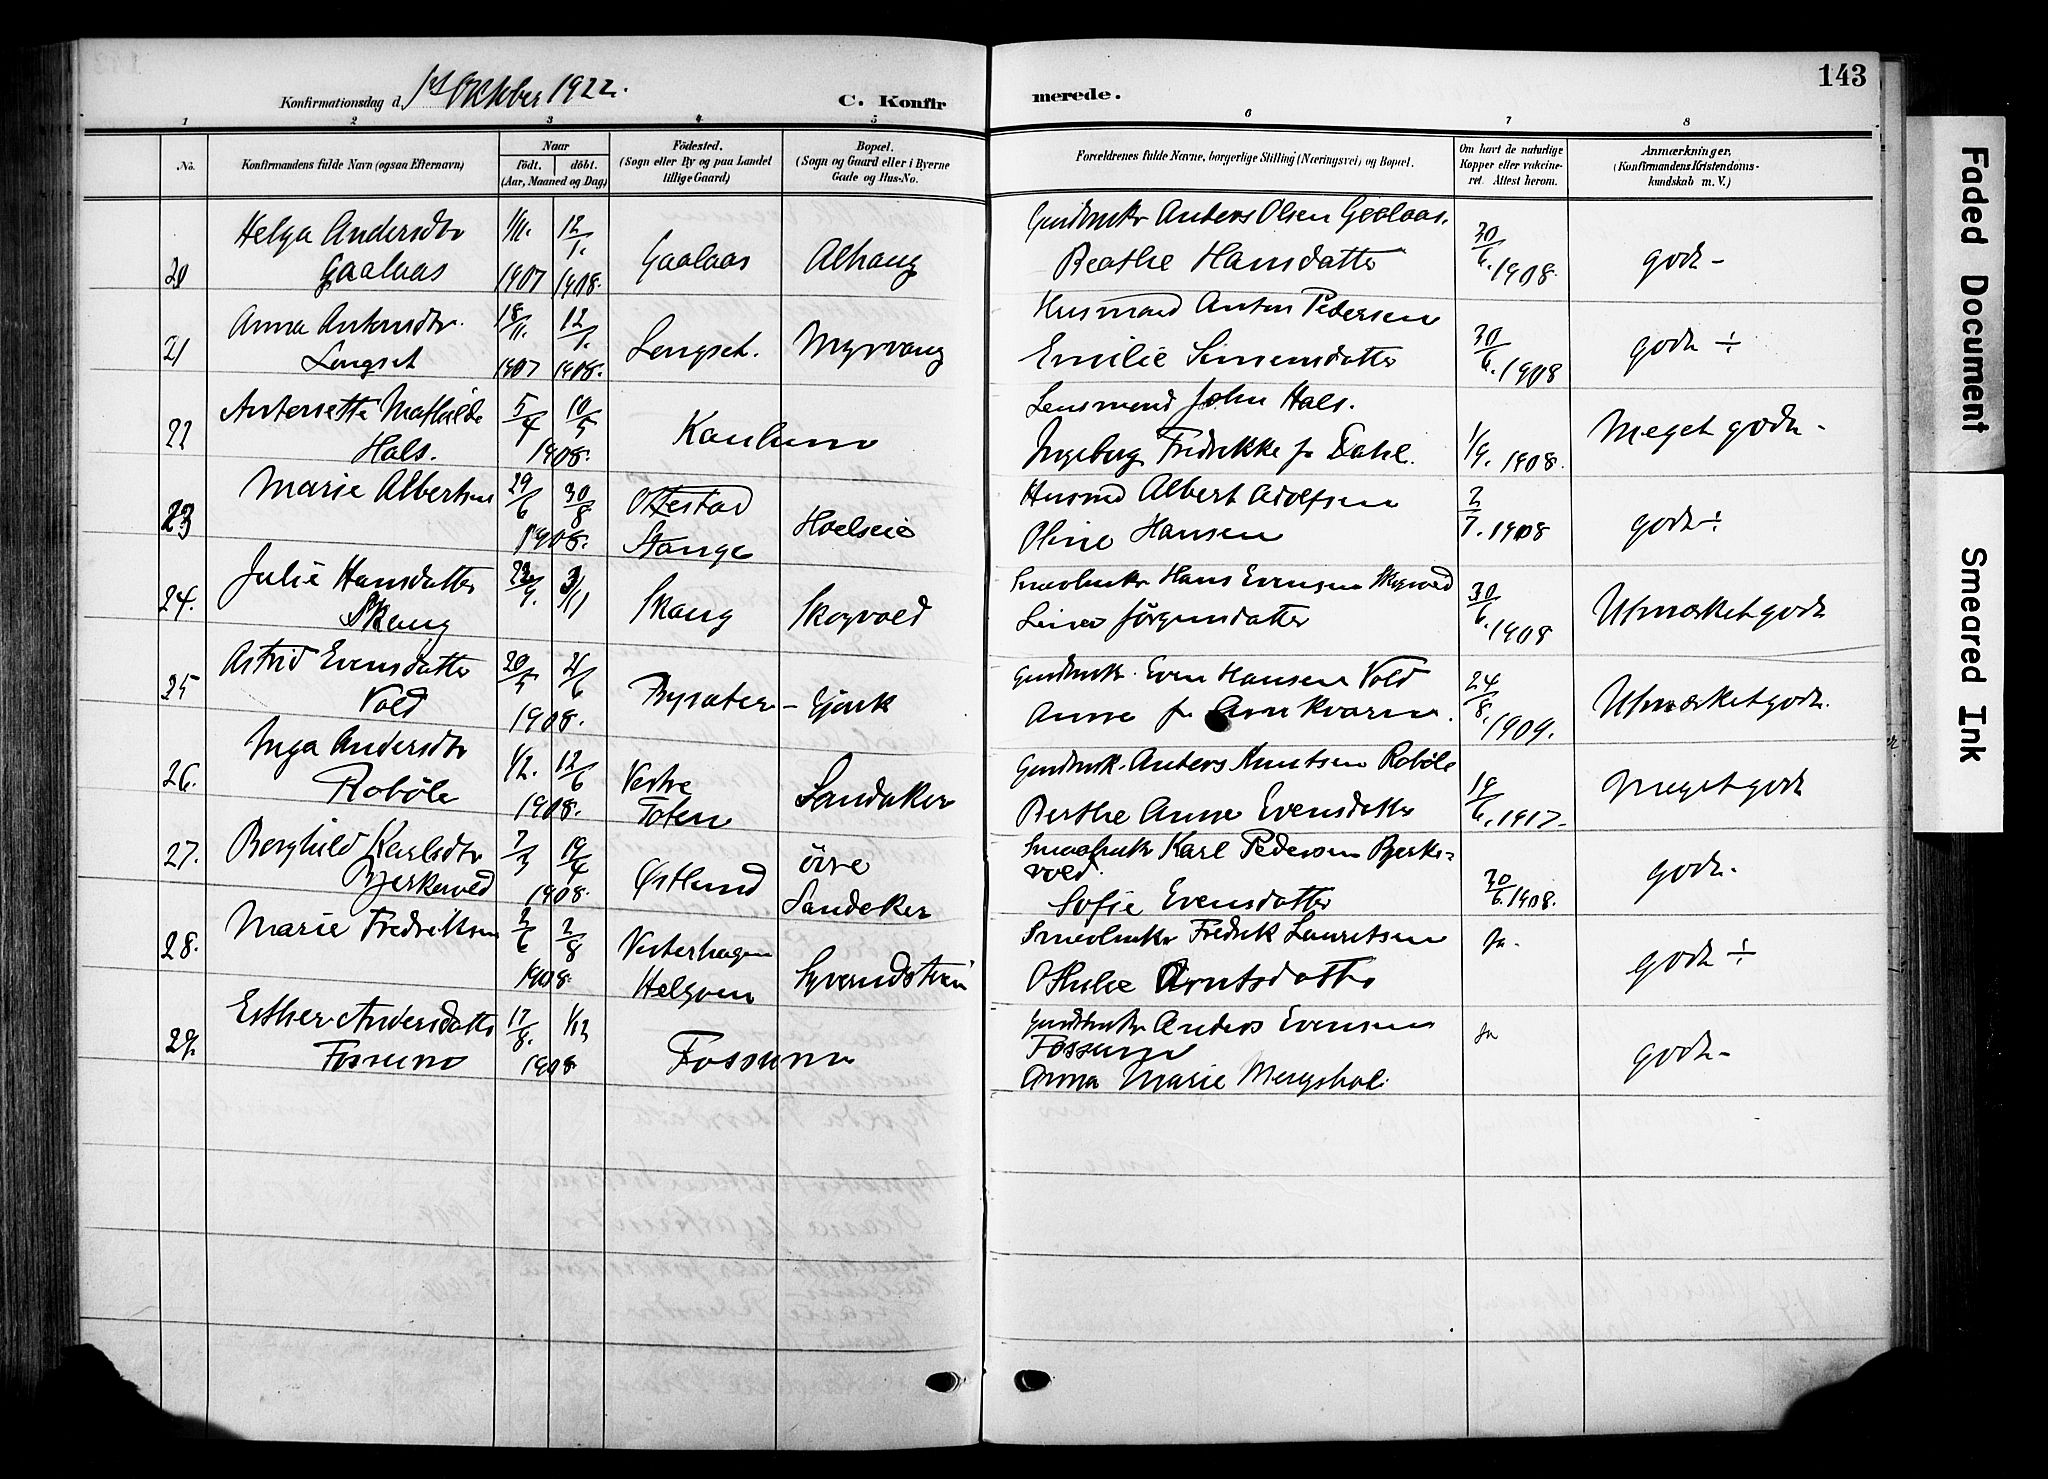 143
Konfirmationsdag d. 1st Oktober 1922.
C. Konfirmerede.
1 2 3 4 5 6 7 8
No.
Konfirmandens fulde Navn (ogsaa Efternavn)
Naar
født. døbt.
(Aar, Maaned og Dag)
Fødested.
(Sogn eller By og paa Landet
tillige Gaard)
Bopæl.
(Sogn og Gaard eller i Byerne
Gade og Hus-No.
Forældrenes fulde Navne, borgerlige Stilling (Næringsvei) og Bopæl.
Om havt de naturlige
Kopper eller vakcine-
ret. Attest herom.
Anmærkninger,
(Konfirmandens Kristendoms-
kundskab m. V.)
20 Helga Andersdtr 1/11. 12/1. Gaalaas Alhaug Gaardbruker Anders Olsen Gaalaas. 30/6. 1908. godt -
Gaalaas 1907 1908. Beathe Hansdatter
21 Anna Antonsdtr. 18/11. 12/1. Lengset. Myrvang Husmand Anton Pedersen 30/6. 1908 godt ÷
Lengset 1907 1908. Emilie Simensdatter
22 Antonette Mathilde 5/4 10/5 Kaulum Lensmand John Hals. 1/9. 1908. Meget godt -
Hals. 1908. Ingeborg Fredrikke f. Dahl.
23 Marie Albertsen 29/6 30/8 Ottestad Hoelseie Husmd Albert Adolfsen 2/7. 1908 godt ÷
1908. Stange Oline Hansen
24. Julie Hansdatter 22/9. 3/11 Skaug Skogvold Smaabruker Hans Evensen Skogvold 30/6. 1908 Utmærket godt
Skaug Lina Jörgensdatter
25 Astrid Evensdatter 20/5 21/6 Bysæter - Gjönk Gaardbruk. Even Hansen Vold 24/8. 1909. Utmærket godt.
Vold 1908. Anne f.
26. Inga Andersdtr 1/2. 12/6 Vestre Sandaker Gaardbruk. Anders Knutsen Roböle 19/6. 1917. Meget godt
Roböle 1908. Toten Berthe Anne Evensdatter
27. Borghild Karlsdtr 7/3 19/4 Østlund övre Smaabruker Karl Pedersen Bjerke-
Bjerkevold 1908. Sandeker vold. 30/6. 1908. godt.
Sofie Evensdatter
28. Marie Fredriksen 2/6 2/8 Vesterhagen Smaabruker Fredrik Lauritsen Ja. godt ÷
1908. Helgöen Othilie Arntsdatter
29. Esther Andersdatter 17/8. 1/12 Fossum Gaardbruker Anders Evensen Ja godt -
Fossum 1908 Fossum
Anna Marie Mengshol
Faded Document
Smeared Ink